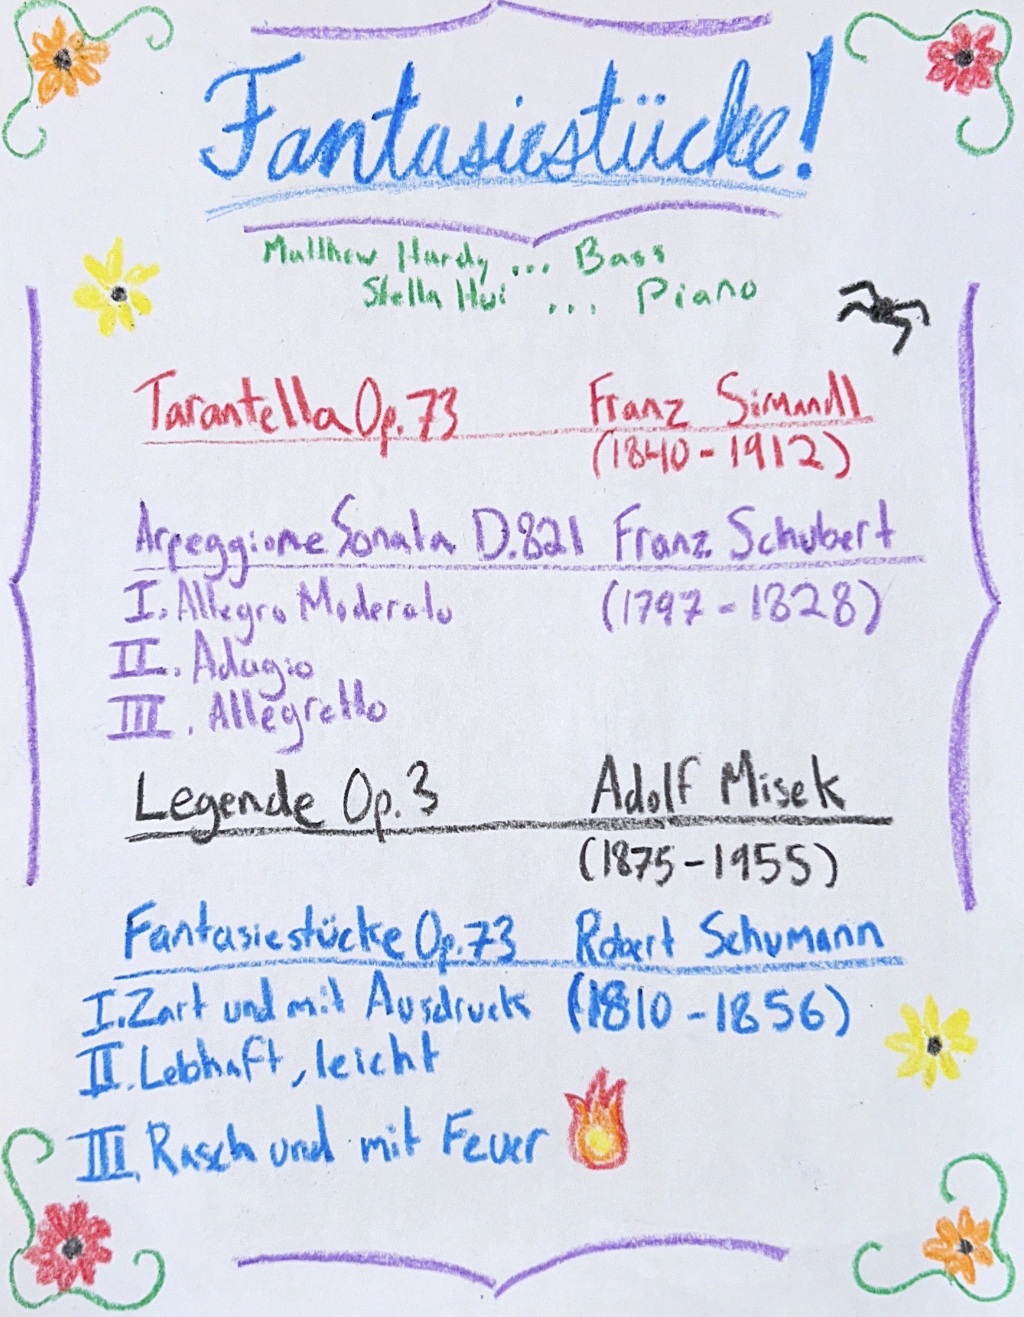 Fantasiestücke!
Matthew Hardy ... Bass
Stella Hui ... Piano
Tarantella Op. 73 Franz Simandl
(1840-1912)
Arpeggione Sonata D.821 Franz Schubert
I. Allegro Moderato (1797-1828)
II. Adagio
III. Allegretto
Legende Op. 3 Adolf Misek
(1875-1955)
Fantasiestücke Op. 73 Robert Schumann
I. Zart und mit Ausdruck (1810-1856)
II. Lebhaft, leicht
III. Rasch und mit Feuer